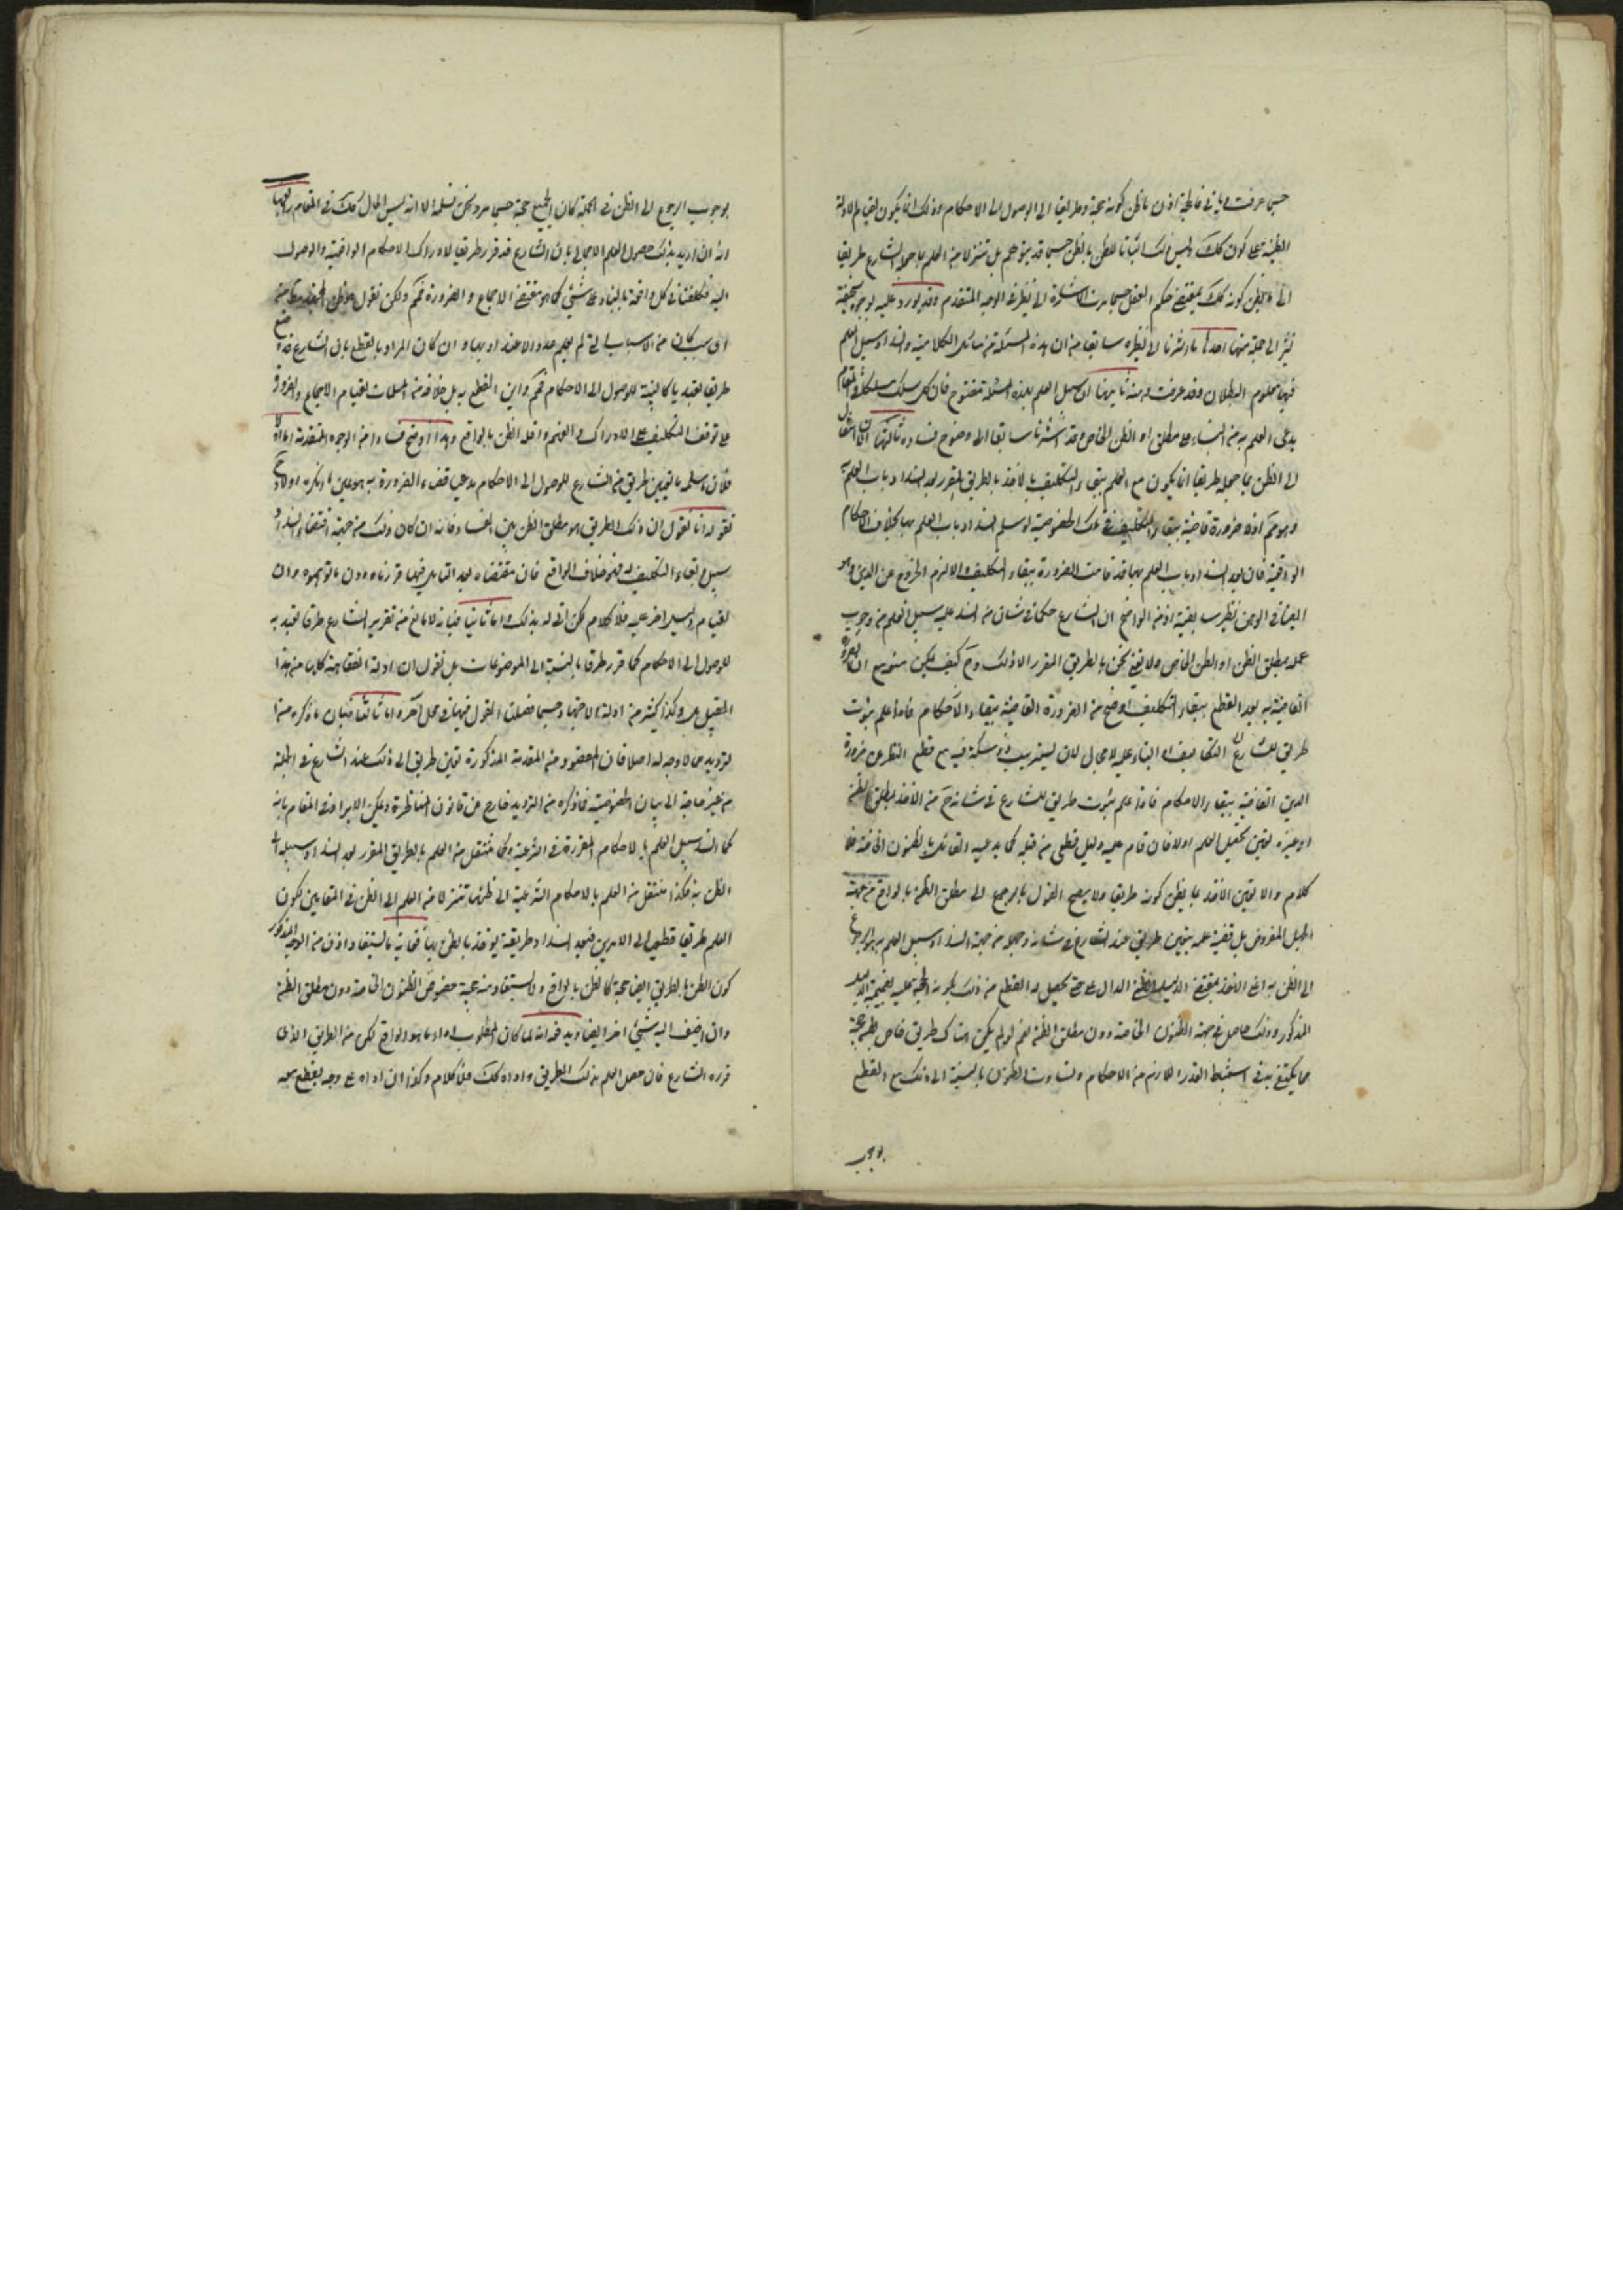 حسبما عرفت وياتي فالحجة اذن ما يظن كونه حجة وطريقا الى الوصول الى الاحكام وذلك انما يكون لقيام الادلة
الظنية على كون كك وليس ذلك اثباتا للظن بالظن حسبما قد يتوهم بل تنزلا من العلم بما جعله الشارع طريقا
الى ما يظن كونه كك بمقتضى حكم العقل حسبما مرت الاشارة الى نظيره في الوجه المتقدم وقد يورد عليه بوجوه سخيفة
نشير الى جملة منها احدها ما اشرنا الى نظيره سابقا من ان هذه المسئلة من مسائل الكلامية وانسداد سبيل العلم
فيها معلوم البطلان وقد عرفت وهنه ثانيها ان سبيل العلم بهذه المسئلة مفتوح فان كل سلك مسلكا في المقام
يدعي العلم به من البناء على مطلق او الظن الخاص وقد اشرنا سابقا الى وضوح فساده ثالثها ان انتقال
الى الظن بما جعله طريقا انما يكون مع العلم ببقاء التكليف بالاخذ بالطريق المقرر بعد انسداد باب العلم به
وهو مم اذ لا ضرورة قاضية ببقاء التكليف في تلك الخصوصية لو سلم انسداد باب العلم بها بخلاف الاحكام
الواقعية فان بعد انسداد باب العلم بها قد قامت الضرورة ببقاء التكليف والا لزم الخروج عن الدين وهو
ايضا في الوهن نظير سابقيه اذ من الواضح ان للشارع حكما في شان من انسد عليه سبيل العلم من وجوب
عمله بمطلق الظن او الظن الخاص ولا نعني نحن بالطريق المقرر الا ذلك وح كيف يمكن منعه مع ان الضرورة
القاضية به بعد القطع ببقاء التكليف اوضح من الضرورة القاضية ببقاء الاحكام فاذا علم ثبوت
طريق للشارع التكاليف او البناء عليه لا مجال لان يستريب ذو مسكة فيه مع قطع النظر عن ضرورة
الدين القاضية ببقاء الاحكام فاذا علم ثبوت طريق للشارع في شانه ح من الاخذ بمطلق الظن
او غيره تعين تحصيل العلم اولا فان قام عليه دليل قطعي من قبله كما يدعيه القائل بالظنون الخاصة فلا
كلام والا تعين الاخذ بما يظن كونه طريقا ولا يصح القول بالرجوع الى مطلق الظن بالواقع من جهة
الجهل المفروض بل قضية علمه بتعيين طريق عند الشارع في شانه وجهله من جهة انسداد سبيل العلم به هو الرجوع
الى الظن به اعني الاخذ بمقتضى الدليل الظني الدال عليه حتى يحصل له القطع من ذلك بكونه الحجة عليه بضميمة الدليل
المذكور وذلك حاصل في جهة الظنون الخاصة دون مطلق الظن نعم لو لم يكن هناك طريق خاص يظن حجيته
مما يكتفى به في استنباط القدر اللازم من الاحكام وتساوت الظنون بالنسبة الى ذلك مع القطع
بوجوب
بوجوب الرجوع الى الظن في الجملة كان الجميع حجة حسبما مر ونحن نسلمه الا انه ليس الحال كك في المقام رابعها
انه ان اريد بذلك حصول العلم الاجمالي بان الشارع قد قرر طريقا لادراك الاحكام الواقعية والوصول
اليه فكلفنا في كل واقعة بالبناء على شئ كما هو مقتضى الاجماع والضرورة فمم ولكن نقول هو ظن المجتهد مطلقا من
اي سبب كان من الاسباب التي لم يعلم عدم الاعتداد بها وان كان المراد القطع بان الشارع قد وضع
طريقا تعبديا كالبينة للوصول الى الاحكام فمم واين القطع به بل خلافه من المسلمات لقيام الاجماع والضرورة
على توقف التكليف على الادراك والفهم واقله الظن بالواقع وهذا اوضح فسادا من الوجوه المتقدمة اما اولا
فلان ما سلمه من تعيين طريق من الشارع للوصول الى الاحكام مدعيا قضاء الضرورة به هو عين ما انكره اولا وح
نقول انا نقول ان ذلك الطريق هو مطلق الظن بين الفساد فانه ان كان ذلك من جهة اقتضاء انسداد
سبيل وبقاء التكليف له فهو خلاف الواقع فان مقتضاه بعد التامل فيها ما قررناه دون ما توهموه وان
لقيام دليل اخر عليه فلا كلام لكن انى له بذلك واما ثانيا فبانه لا مانع من تقرير الشارع طرقا تعبدية
للوصول الى الاحكام كما قرر طرقا بالنسبة الى الموضوعات بل نقول ان ادلة الفقاهة كلها من هذا
القبيل بل وكذا كثير من ادلة الاجتهاد حسبما فصلنا القول فيها في محل اخر واما ثالثا فبان ما ذكره من
الترديد مما لا وجه له اصلا فان المقصود من المقدمة المذكورة تعين طريق الى ذلك عند الشارع في الجملة
من غير حاجة الى بيان الخصوصية فما ذكره من الترديد خارج عن قانون المناظرة ويمكن الايراد في المقام بانه
كما انسد سبيل العلم بالاحكام المقررة في الشريعة وكما ننتقل من العلم بالطريق المقرر بعد انسداد سبيله الى
الظن به فكذا ننتقل من العلم بالاحكام الشرعية الى ظنها تنزلا من العلم الى الظن في المقامين لكون
العلم طريقا قطعيا الى الامرين فبعد انسداد طريقه يؤخذ بالظن بهما فغاية ما يستفاد اذن من الوجه المذكور
كون الظن بالطريق ايضا حجة كالظن بالواقع ولا يستفاد منه حجية خصوص الظنون الخاصة دون مطلق الظن
وان اضيف اليه شئ اخر ايضا ويدفعه انه لما كان المطلوب اداء ما هو الواقع لكن من الطريق الذي
قرره الشارع فان حصل العلم بذلك الطريق واداه كك فلا كلام وكذا ان اداه على وجه يقطع معه